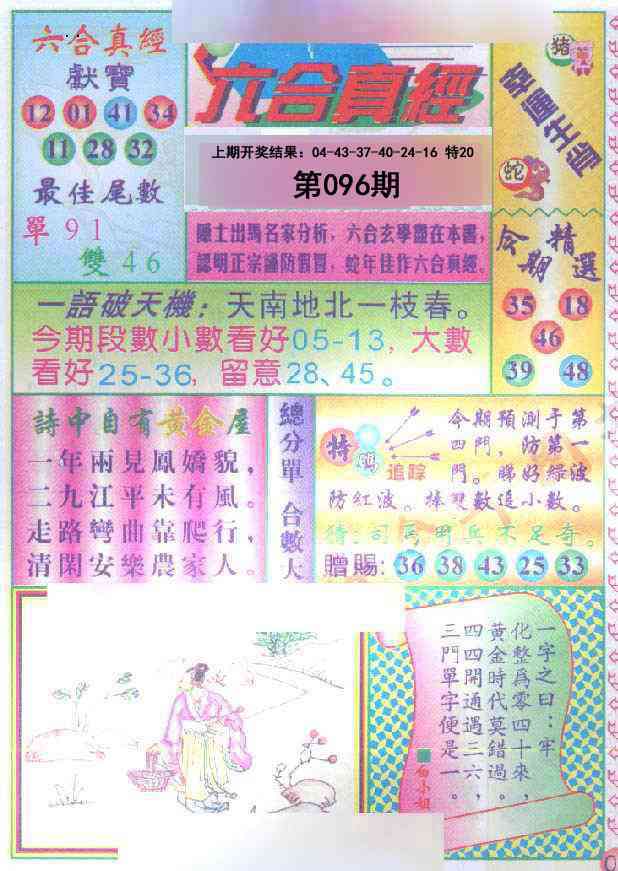 六合真經
獻寶
12 01 41 34
11 28 32
最佳尾數
單 91
雙 46
六合真經
上期开奖结果: 04-43-37-40-24-16 特20
第096期
隱士出馬名家分析, 六合玄學盡在本書,
認明正宗謹防假冒, 蛇年佳作六合真經。
豬
蛇
今期精選
35 18
46
39 48
一語破天機: 天南地北一枝春。
今期段數小數看好05-13, 大數
看好25-36, 留意28、45。
詩中自有黃金屋
一年兩見鳳嬌貌,
二九江平未有風。
走路彎曲靠爬行,
清閑安樂農家人。
總分單 合數大
特
追踪
今期預測于第
四門, 防第一
門。睇好綠波
防紅波。捧雙數追小數。
猜:司馬用兵不足奇。
贈賜: 36 38 43 25 33
一字之曰:牢
化整爲零四十來,
黃金時代莫錯過,
四四開通遇三六,
三門單字便是一。
白小姐